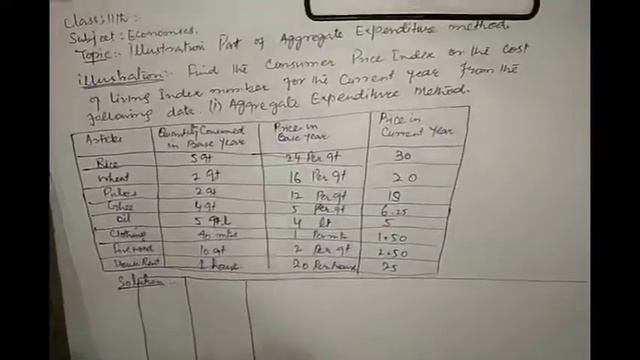 Class: 11th.
Subject: Economics.
Topic: Illustration Part of Aggregate Expenditure method.
illustration:- Find the Consumer Price Index or the cost
of Living Index number for the Current year from the
following data (i) Aggregate Expenditure Method.
Articles Quantity Consumed in Base Year Price in Base year Price in Current Year
Rice 5 qt 24 Per qt 30
Wheat 2 qt 16 Per qt 20
Pulses 2 qt 12 Per qt 18
Ghee 4 qt 5 Per qt 6.25
Oil 5 4 lt 5
Clothing 40 mtrs 1 Per mt 1.50
Firewood 10 qt 2 Per qt 2.50
House Rent 1 house 20 Per house 25
Solution:-